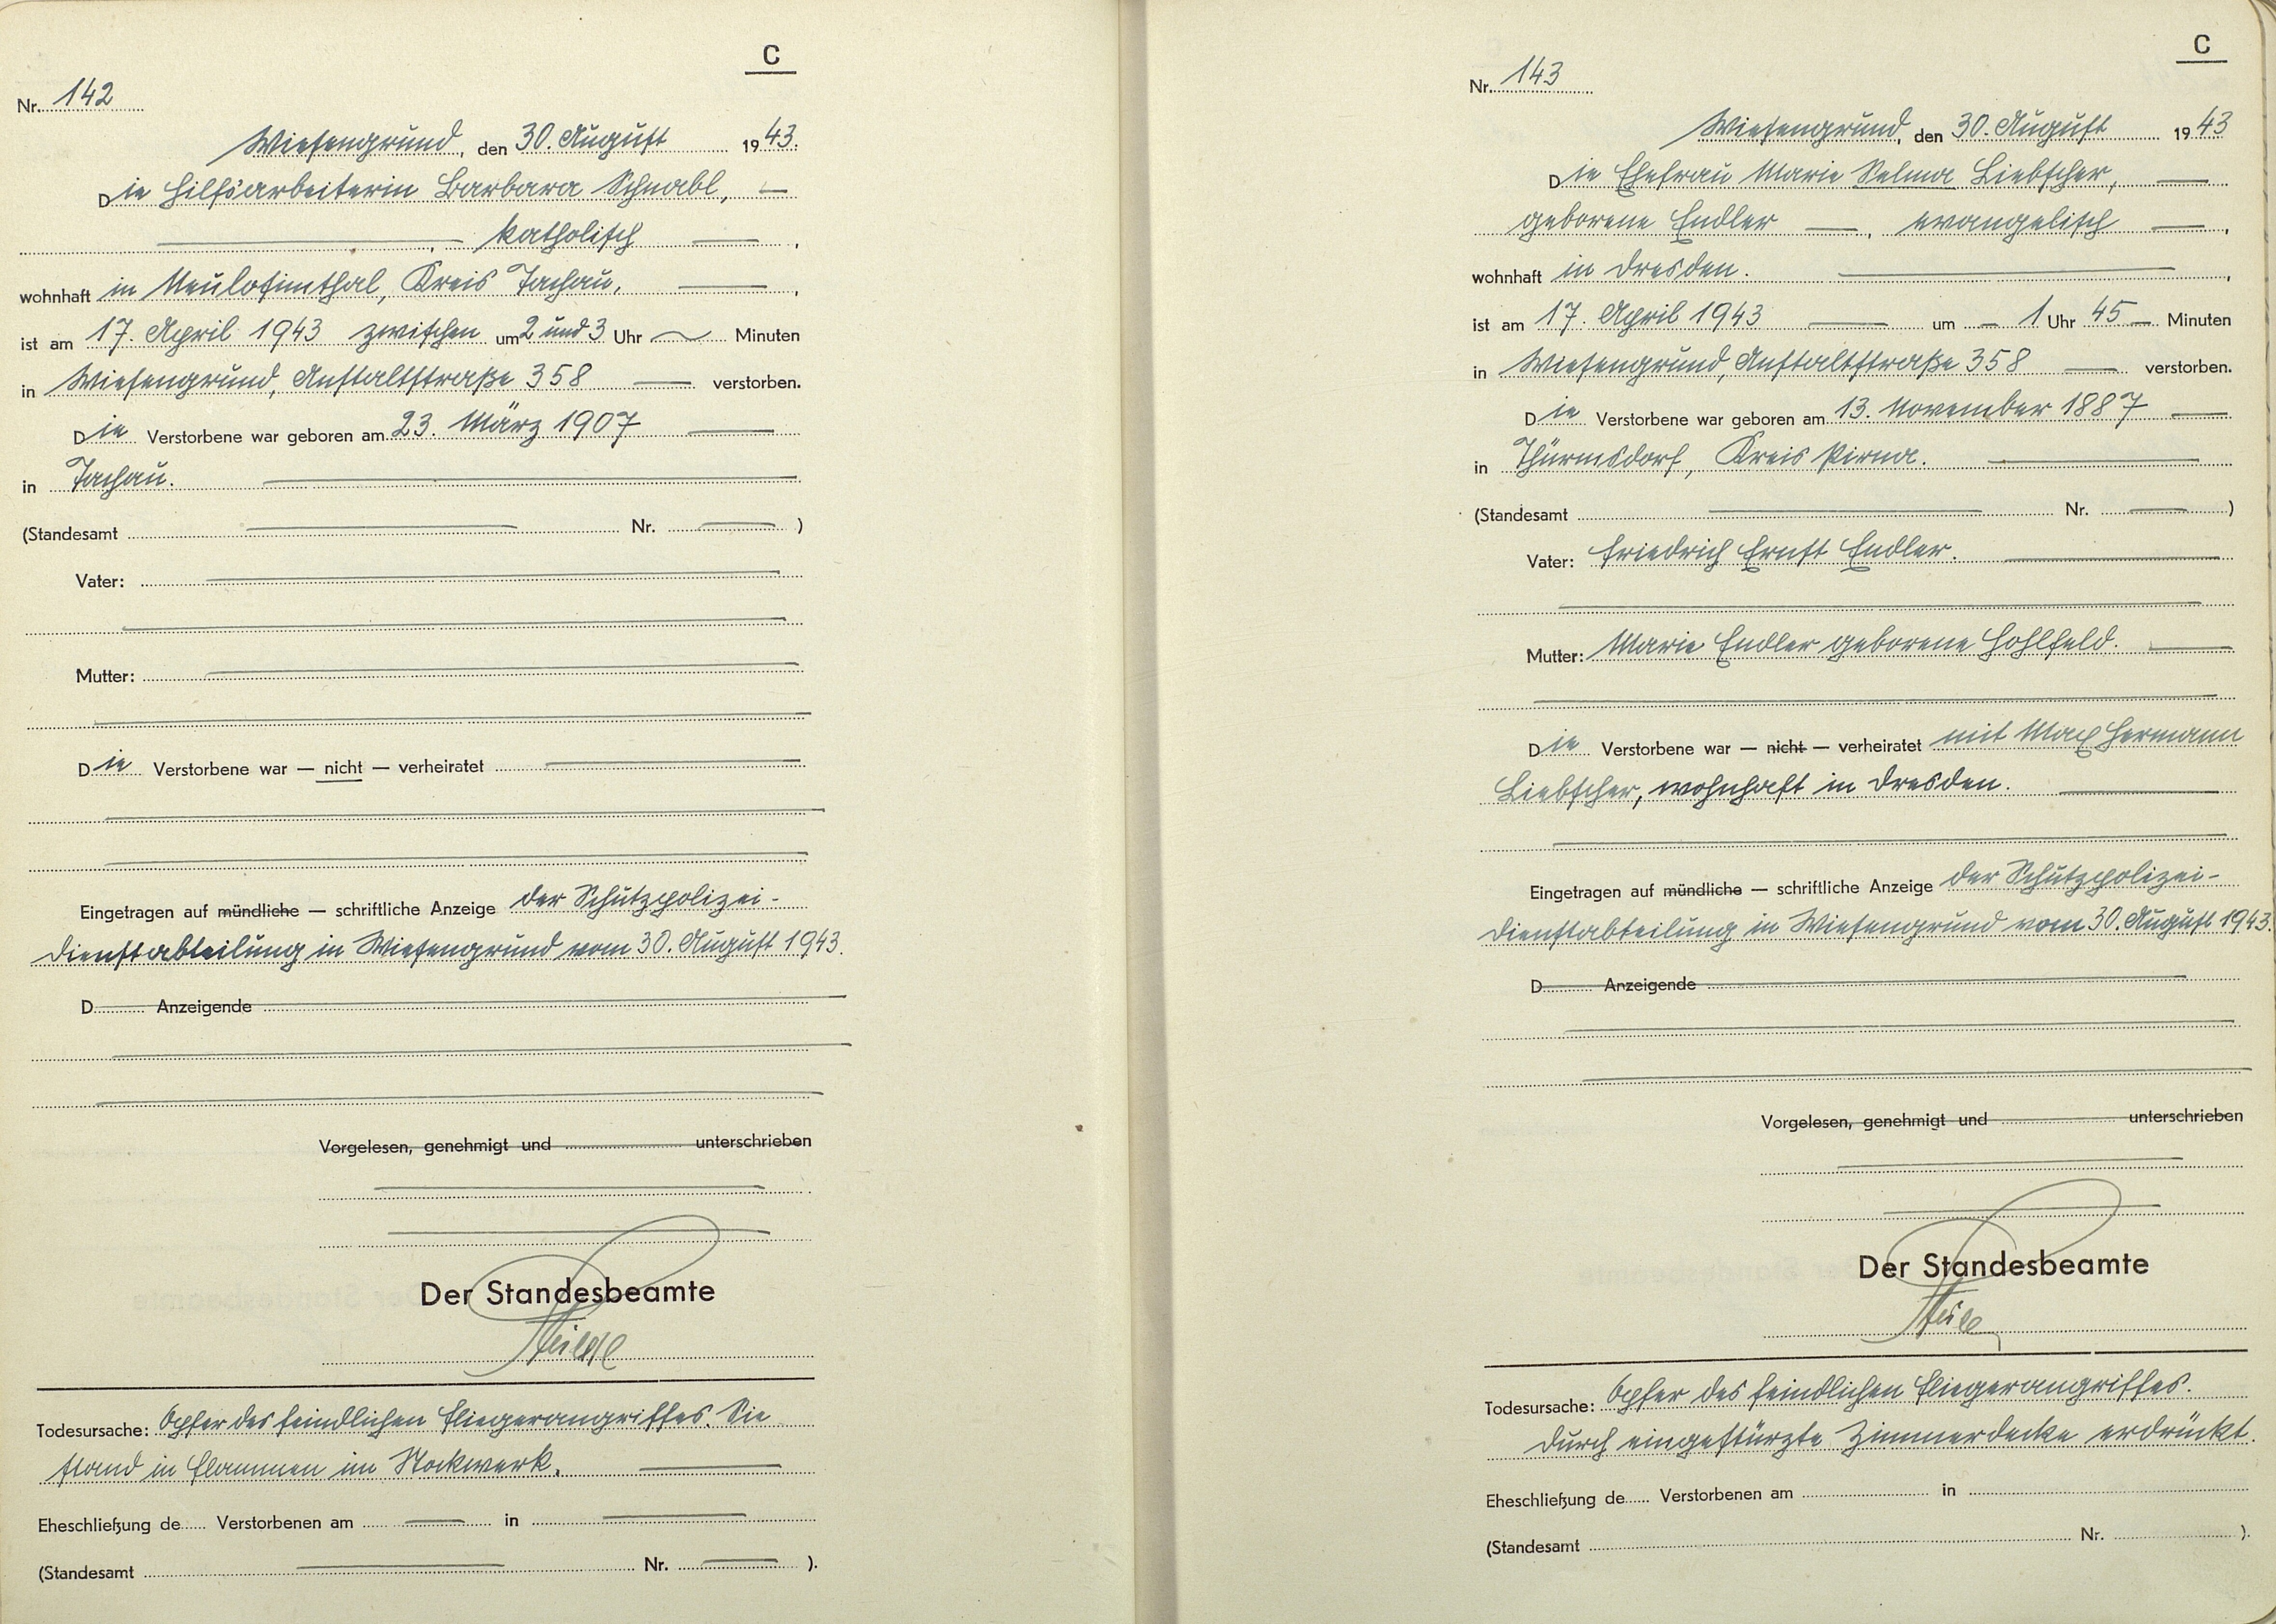 C
Nr. 142
Wiesengrund, den 30. August 1943.
Die Hilfsarbeiterin Barbara Schnabl,
katholisch,
wohnhaft in Neulosimthal, Kreis Tachau,
ist am 17. April 1943 zwischen um 2 und 3 Uhr Minuten
in Wiesengrund, Anstaltstraße 358 verstorben.
Die Verstorbene war geboren am 23. März 1907
in Tachau.
(Standesamt Nr. )
Vater:
Mutter:
Die Verstorbene war — nicht — verheiratet
Eingetragen auf mündliche — schriftliche Anzeige der Schutzpolizei-
dienstabteilung in Wiesengrund vom 30. August 1943.
D Anzeigende
Vorgelesen, genehmigt und unterschrieben
Der Standesbeamte
Todesursache: Opfer des feindlichen Fliegerangriffes. Sie
stand in Flammen im Stockwerk.
Eheschließung de Verstorbenen am in
(Standesamt Nr. ).
C
Nr. 143
Wiesengrund, den 30. August 1943
Die Ehefrau Marie Selma Liebscher,
geborene Endler, evangelisch,
wohnhaft in Dresden.,
ist am 17. April 1943 um 1 Uhr 45 Minuten
in Wiesengrund, Anstaltstraße 358 verstorben.
Die Verstorbene war geboren am 13. November 1887
in Thürmsdorf, Kreis Pirna.
(Standesamt Nr. )
Vater: Friedrich Ernst Endler.
Mutter: Marie Endler geborene Hohlfeld.
Die Verstorbene war — nicht — verheiratet mit Max Hermann
Liebscher, wohnhaft in Dresden.
Eingetragen auf mündliche — schriftliche Anzeige der Schutzpolizei-
dienstabteilung in Wiesengrund vom 30. August 1943.
D Anzeigende
Vorgelesen, genehmigt und unterschrieben
Der Standesbeamte
Todesursache: Opfer des feindlichen Fliegerangriffes.
Durch eingestürzte Zimmerdecke erdrückt.
Eheschließung de Verstorbenen am in
(Standesamt Nr. ).